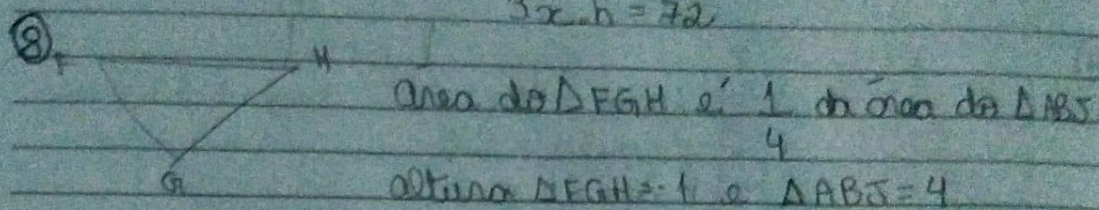 3x.h = 72
8
F H
área do △FGH é 1/4 da área do △ABJ
G
altura △FGH = 1 e △ABJ = 4